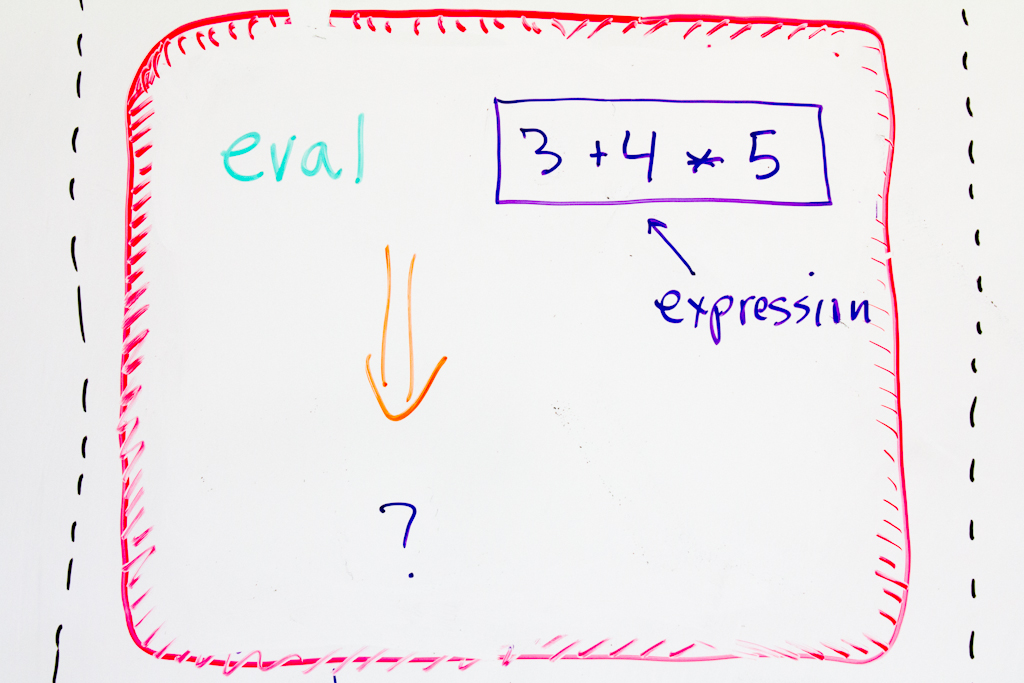 eval 3 + 4 * 5
expression
?